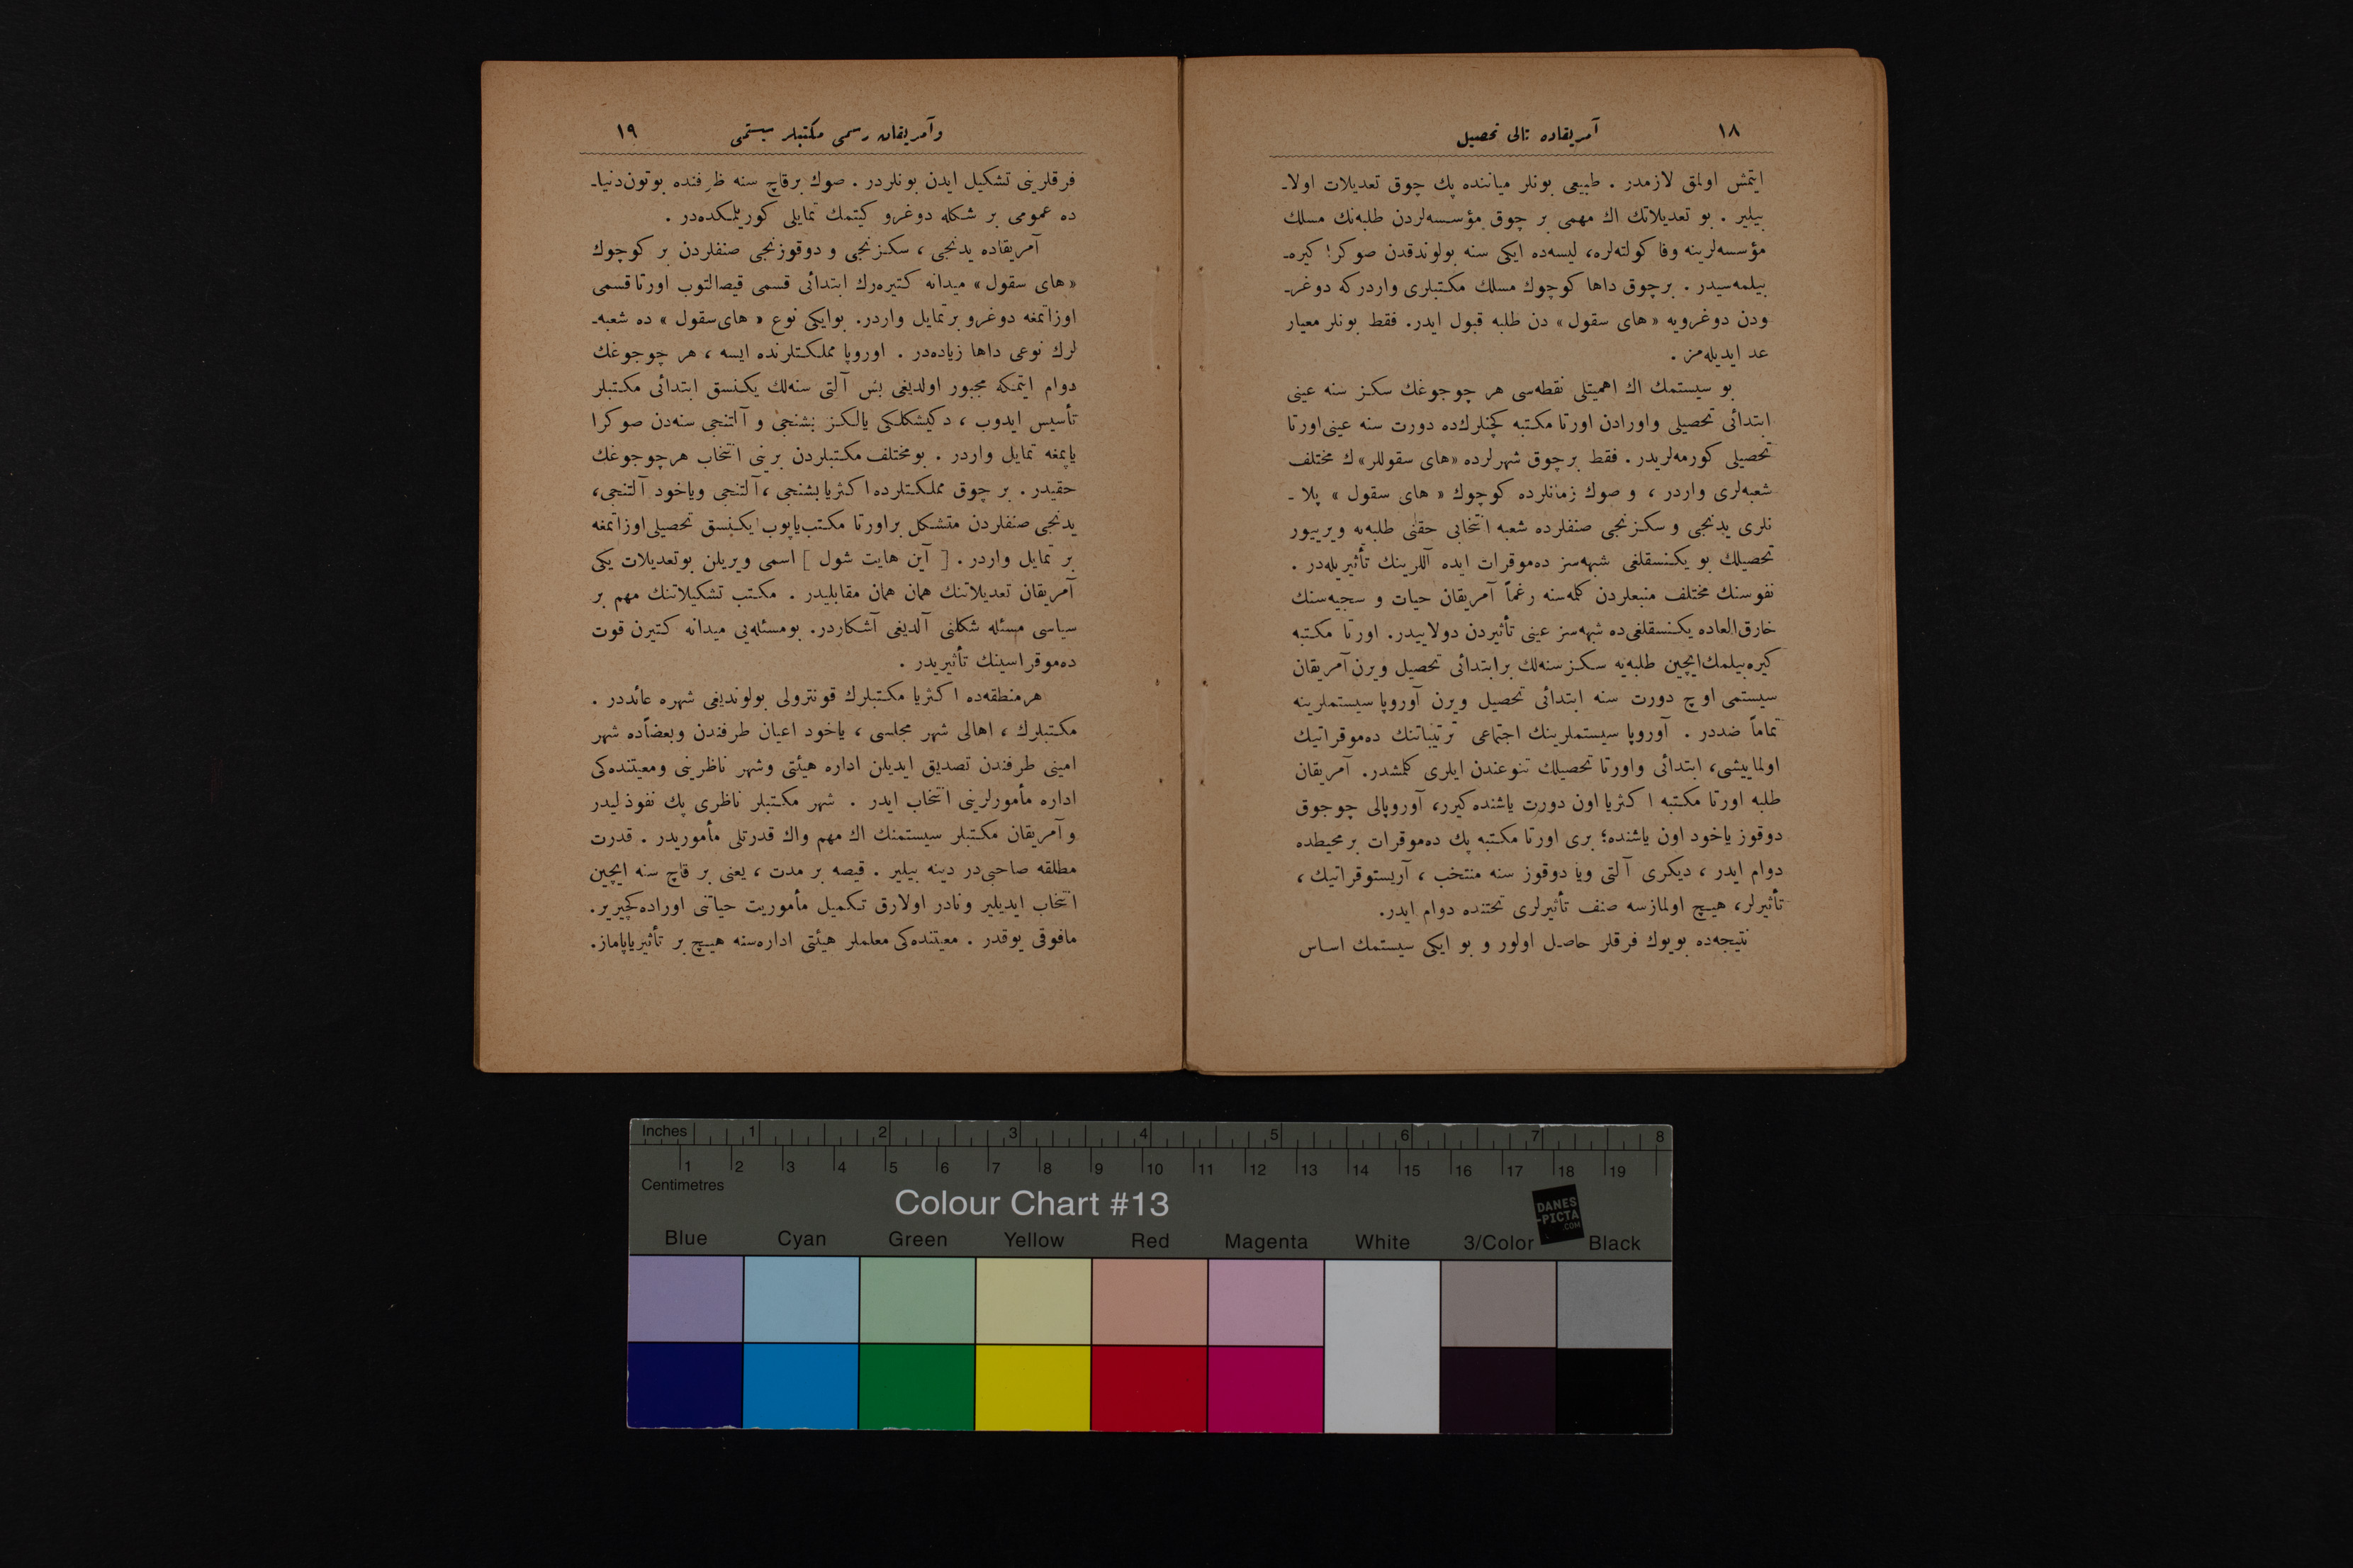 ١٨
آمریقاده تالی تحصیل
ایتمش اولمق لازمدر . طبیعی بونلر میاننده پك چوق تعدیلات اولا-
بیلیر . بو تعدیلاتك اك مهمی بر چوق مؤسسه‌لردن طلبه‌نك مسلك
مؤسسه‌لرینه وفا كولته‌لره، لیسه‌ده ایكی سنه بولوندقدن صوكرا كیره-
بیلمه‌سیدر . برچوق داها كوچوك مسلك مكتبلری واردركه دوغر-
ودن دوغرویه «های سقول» دن طلبه قبول ایدر. فقط بونلر معیار
عد ایدیله‌مز .
بو سیستمك اك اهمیتلی نقطه‌سی هر چوجوغك سكز سنه عینی
ابتدائی تحصیلی واورادن اورتا مكتبه كچنلرك‌ده دورت سنه عینی اورتا
تحصیلی كورمه‌لریدر . فقط برچوق شهرلرده «های سقوللر»ك مختلف
شعبه‌لری واردر ، و صوك زمانلرده كوچوك « های سقول » پلا -
نلری یدنجی و سكزنجی صنفلرده شعبه انتخابی حقنی طلبه‌یه ویرییور
تحصیلك بو یكنسقلغی شبهه‌سز ده‌موقرات ایده آللرینك تأثیریله‌در .
نفوسنك مختلف منبعلردن كلمه‌سنه رغماً آمریقان حیات و سجیه‌سنك
خارق‌العاده یكنسقلغی‌ده شبهه‌سز عینی تأثیردن دولاییدر. اورتا مكتبه
كیره‌بیلمك‌ایچین طلبه‌یه سكز سنه‌لك برابتدائی تحصیل ویرن آمریقان
سیستمی اوچ دورت سنه ابتدائی تحصیل ویرن آوروپا سیستملرینه
تماماً ضددر . آوروپا سیستملرینك اجتماعی ترتیباتنك ده‌موقراتیك
اولماییشی، ابتدائی واورتا تحصیلك تنوعندن ایلری كلمشدر. آمریقان
طلبه اورتا مكتبه اكثریا اون دورت یاشنده كیرر، آوروپالی چوجوق
دوقوز یاخود اون یاشنده؛ بری اورتا مكتبه پك ده‌موقرات برمحیطده
دوام ایدر ، دیكری آلتی ویا دوقوز سنه منتخب ، آریستوقراتیك ،
تأثیرلر، هیچ اولمازسه صنف تأثیرلری تحتنده دوام ایدر.
نتیجه‌ده بویوك فرقلر حاصل اولور و بو ایكی سیستمك اساس
وآمریقان رسمی مكتبلر سیستمی
١٩
فرقلرینی تشكیل ایدن بونلردر . صوك برقاچ سنه ظرفنده بوتون‌دنیا-
ده عمومی بر شكله دوغرو كیتمك تمایلی كوریلمكده‌در .
آمریقاده یدنجی ، سكزنجی و دوقوزنجی صنفلردن بر كوچوك
«های سقول» میدانه كتیره‌رك ابتدائی قسمی قیصالتوب اورتا قسمی
اوزاتمغه دوغرو برتمایل واردر. بوایكی نوع « های‌سقول » ده شعبه-
لرك نوعی داها زیاده‌در . اوروپا مملكتلرنده ایسه ، هر چوجوغك
دوام ایتمكه مجبور اولدیغی بش آلتی سنه‌لك یكنسق ابتدائی مكتبلر
تأسیس ایدوب ، دكیشكلكی یالكز بشنجی و آلتنجی سنه‌دن صوكرا
یاپمغه تمایل واردر . بومختلف مكتبلردن برینی انتخاب هرچوجوغك
حقیدر . بر چوق مملكتلرده اكثریا بشنجی ، آلتنجی ویاخود آلتنجی،
یدنجی صنفلردن متشكل براورتا مكتب‌یاپوب یكنسق تحصیلی اوزاتمغه
بر تمایل واردر . [ آین هایت شول ] اسمی ویریلن بوتعدیلات یكی
آمریقان تعدیلاتنك همان همان مقابلیدر . مكتب تشكیلاتنك مهم بر
سیاسی مسئله شكلنی آلدیغی آشكاردر. بومسئله‌یی میدانه كتیرن قوت
ده‌موقراسینك تأثیریدر .
هرمنطقه‌ده اكثریا مكتبلرك قونترولی بولوندیغی شهره عائددر .
مكتبلرك ، اهالی شهر مجلسی ، یاخود اعیان طرفندن وبعضاًده شهر
امینی طرفندن تصدیق ایدیلن اداره هیئتی وشهر ناظرینی ومعیتنده‌كی
اداره مأمورلرینی انتخاب ایدر . شهر مكتبلر ناظری پك نفوذلیدر
وآمریقان مكتبلر سیستمنك اك مهم واك قدرتلی مأموریدر . قدرت
مطلقه صاحبی‌در دینه بیلیر . قیصه بر مدت ، یعنی بر قاچ سنه ایچین
انتخاب ایدیلیر ونادر اولارق تكمیل مأموریت حیاتنی اوراده‌كچیریر.
مافوقی یوقدر . معیتنده‌كی معلملر هیئتی اداره‌سنه هیچ بر تأثیریاپاماز.
Inches 1 2 3 4 5 6 7 8
1 2 3 4 5 6 7 8 9 10 11 12 13 14 15 16 17 18 19
Centimetres
Colour Chart #13
DANES
-PICTA
.COM
Blue Cyan Green Yellow Red Magenta White 3/Color Black